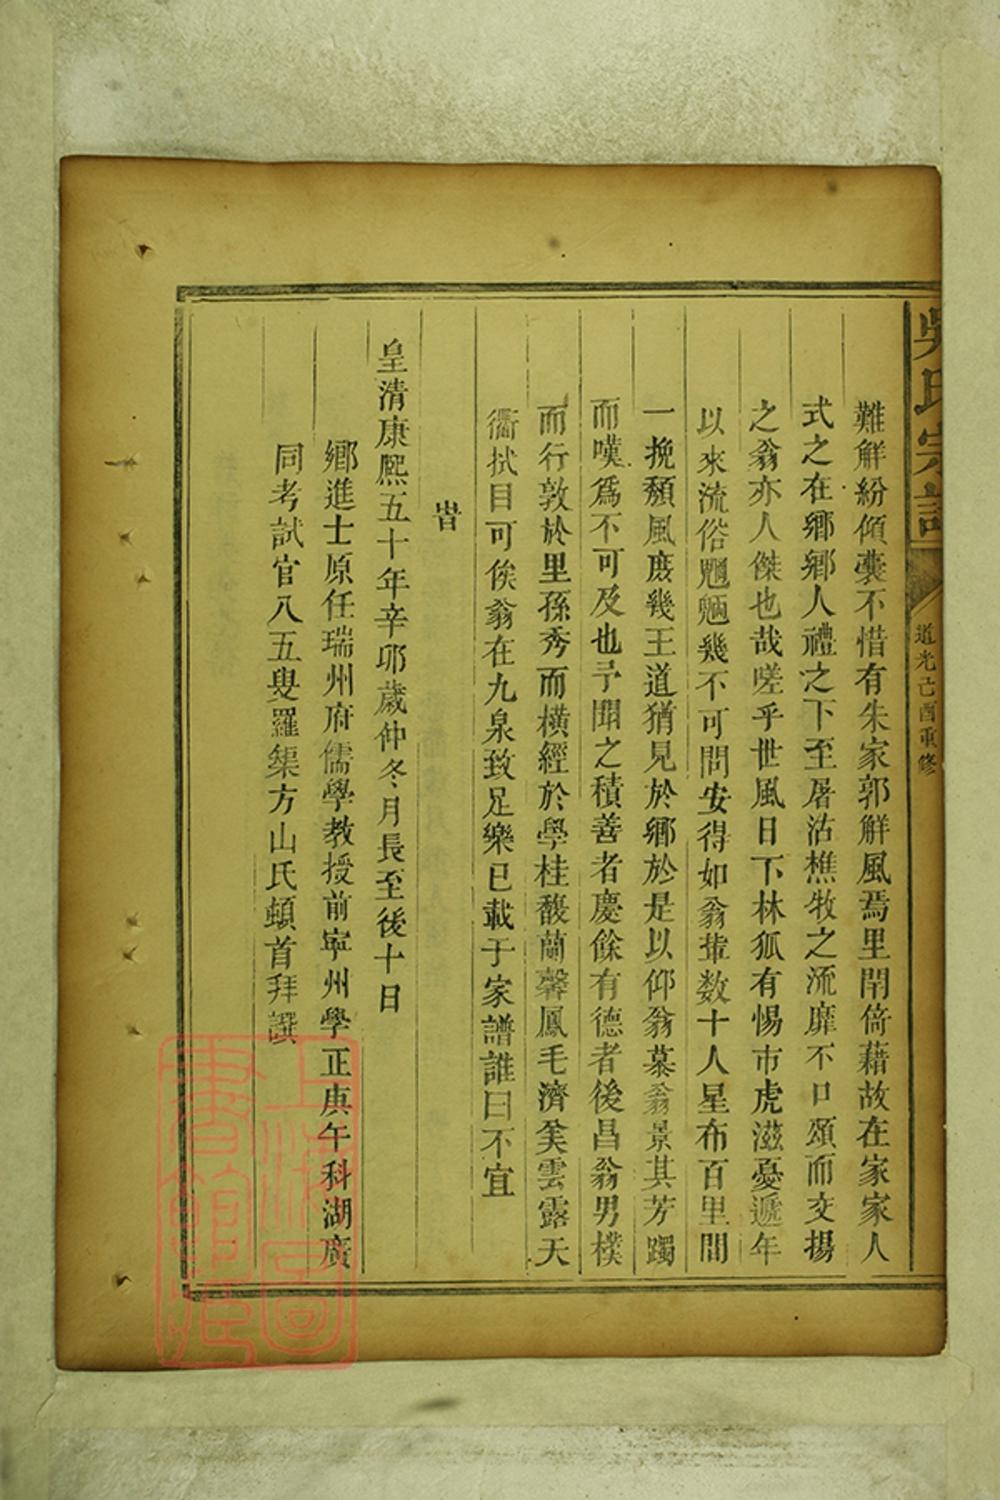 吳氏宗譜
道光己酉重修
難解紛傾囊不惜有朱家郭解風焉里閈倚藉故在家家人
式之在鄉鄉人禮之下至屠沽樵牧之流靡不口頌而交揚
之翁亦人傑也哉嗟乎世風日下林狐有惕市虎滋憂遞年
以來流俗魍魎幾不可問安得如翁軰数十人星布百里間
一挽頽風庶幾王道猶見於鄉於是以仰翁慕翁景其芳躅
而嘆爲不可及也予聞之積善者慶餘有德者後昌翁男樸
而行敦於里孫秀而橫經於學桂馥蘭馨鳳毛濟美雲露天
衢拭目可俟翁在九泉致足樂已載于家譜誰曰不宜
旹
皇清康熙五十年辛卯歲仲冬月長至後十日
鄉進士原任瑞州府儒學教授前寧州學正庚午科湖廣
同考試官八五叟羅榘方山氏頓首拜譔
上海圖書館藏